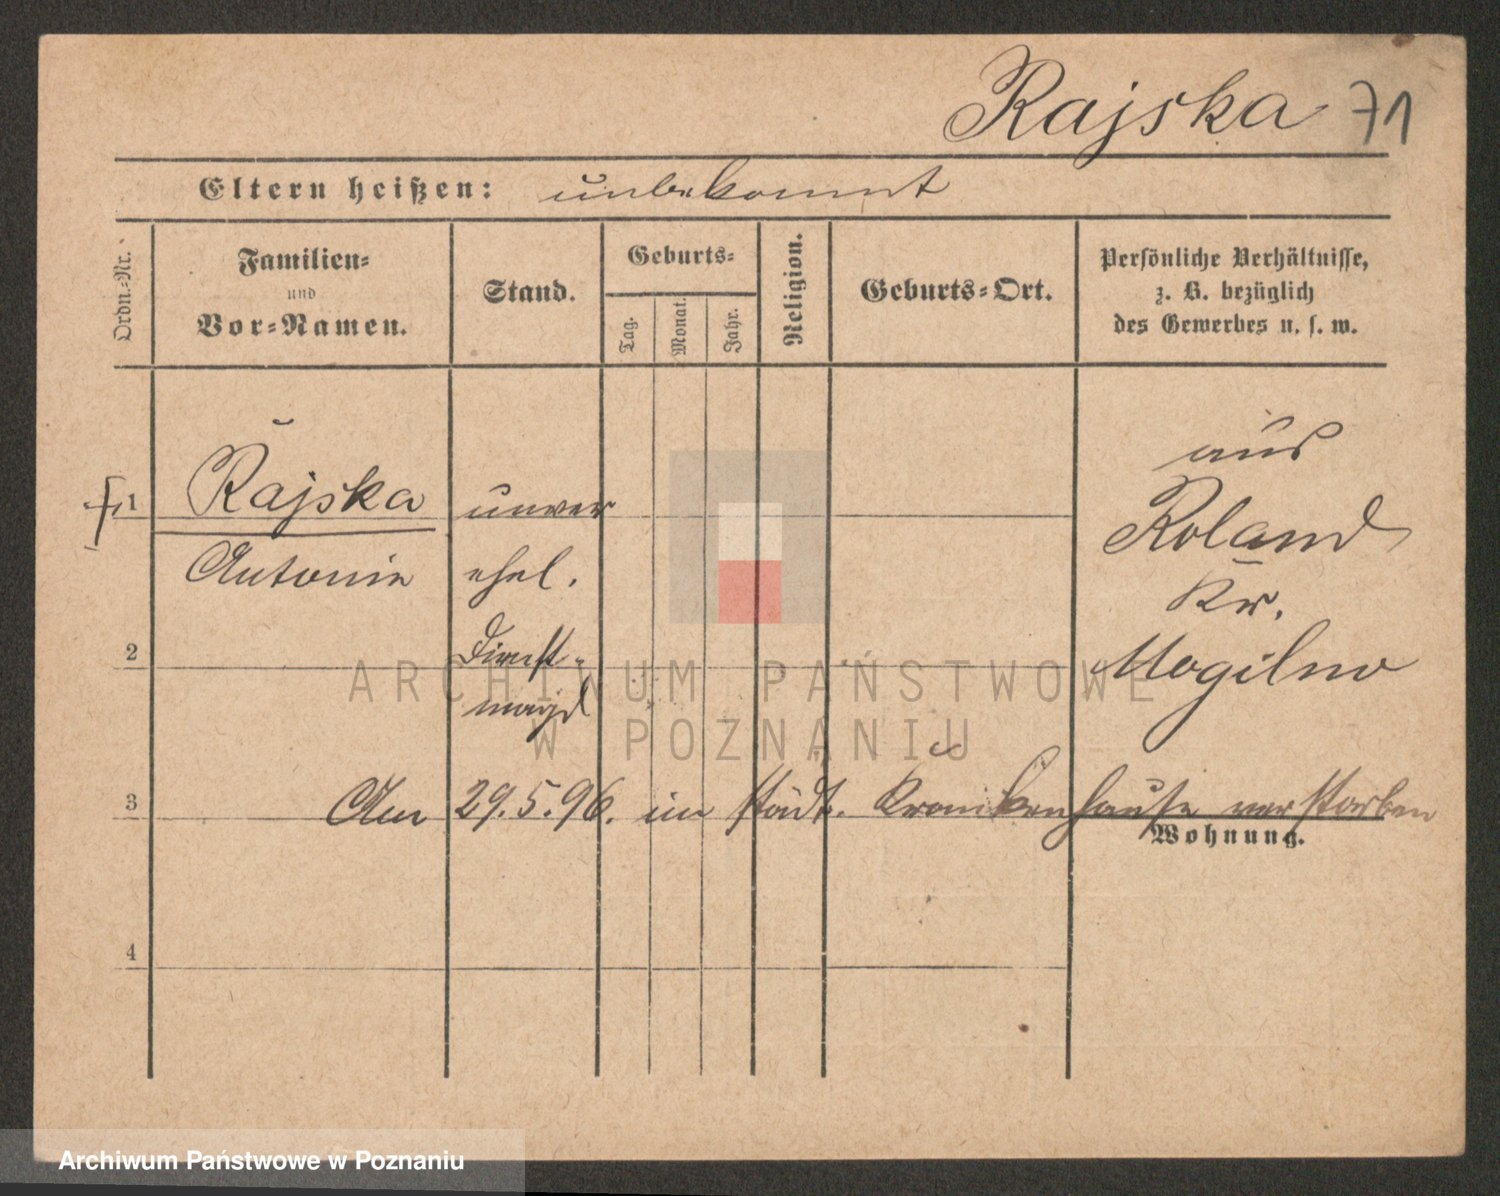 Rajska 71
Eltern heißen: unbekannt
Ordn.-Nr.
Familien-
und
Vor-Namen.
Stand.
Geburts-
Tag.
Monat.
Jahr.
Religion.
Geburts-Ort.
Persönliche Verhältnisse,
z. B. bezüglich
des Gewerbes u. s. w.
1 Rajska unver
Antonie ehel.
aus
Roland
Kr.
Mogilno
2 Dienst-
magd
3 Am 29.5.96. im städt. Krankenhause verstorben
Wohnung.
4
ARCHIWUM PAŃSTWOWE
W POZNANIU
Archiwum Państwowe w Poznaniu